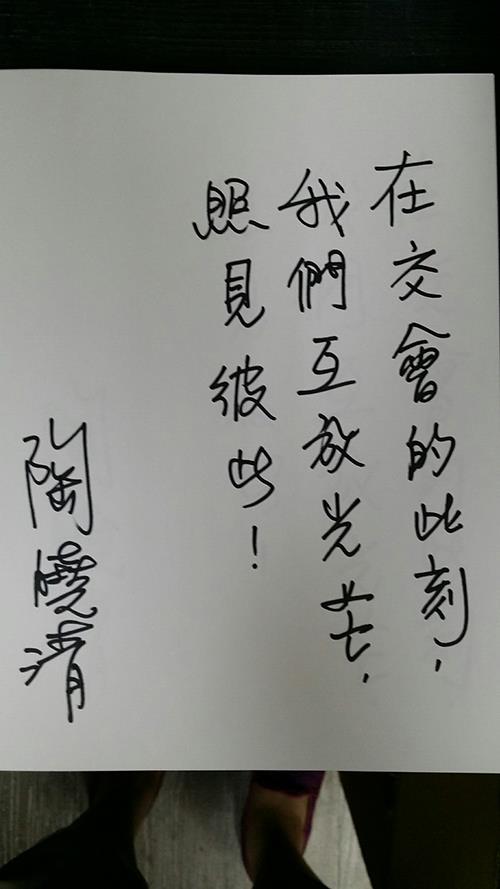 在交會的此刻,
我們互放光芒,
照見彼此!
陶曉清